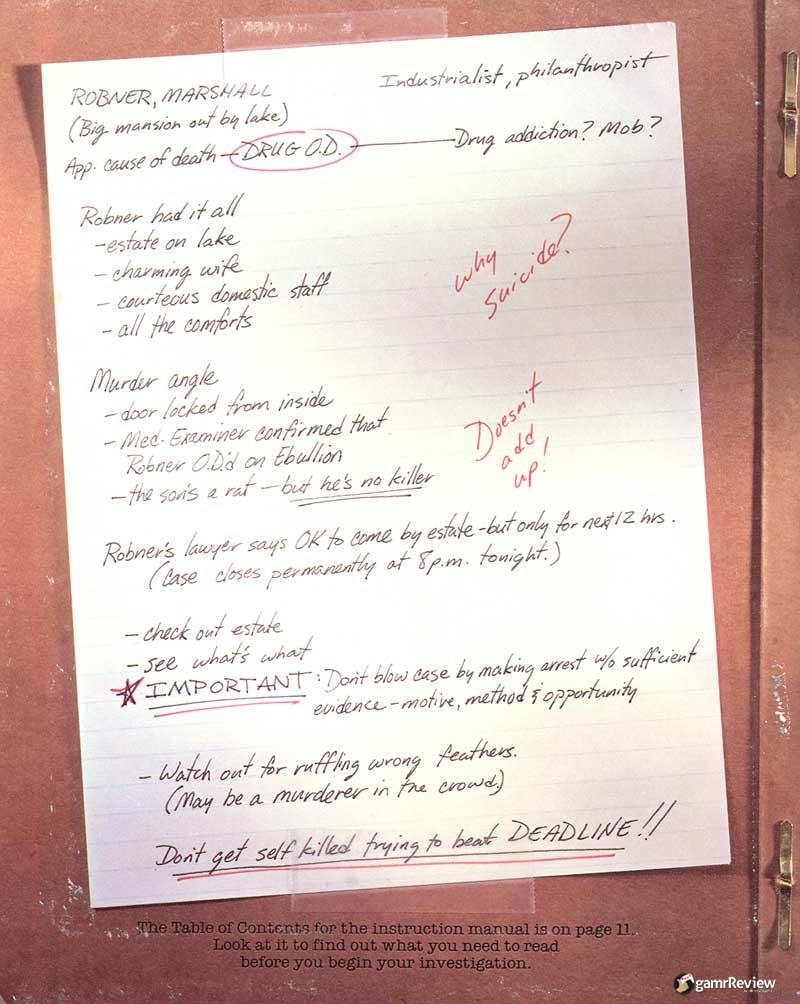 ROBNER, MARSHALL
Industrialist, philanthropist
(Big mansion out by lake)
App. cause of death – DRUG O.D. – Drug addiction? Mob?
Robner had it all
– estate on lake
– charming wife
– courteous domestic staff
– all the comforts
why
suicide?
Murder angle
– door locked from inside
– Med. Examiner confirmed that
Robner O.D.'d on Ebullion
– the son's a rat – but he's no killer
Doesn't
add
up!
Robner's lawyer says OK to come by estate – but only for next 12 hrs.
(Case closes permanently at 8 p.m. tonight.)
– check out estate
– see what's what
☆ IMPORTANT: Don't blow case by making arrest w/o sufficient
evidence – motive, method & opportunity
– Watch out for ruffling wrong feathers.
(May be a murderer in the crowd.)
Don't get self killed trying to beat DEADLINE!!
The Table of Contents for the instruction manual is on page 11.
Look at it to find out what you need to read
before you begin your investigation.
gamrReview